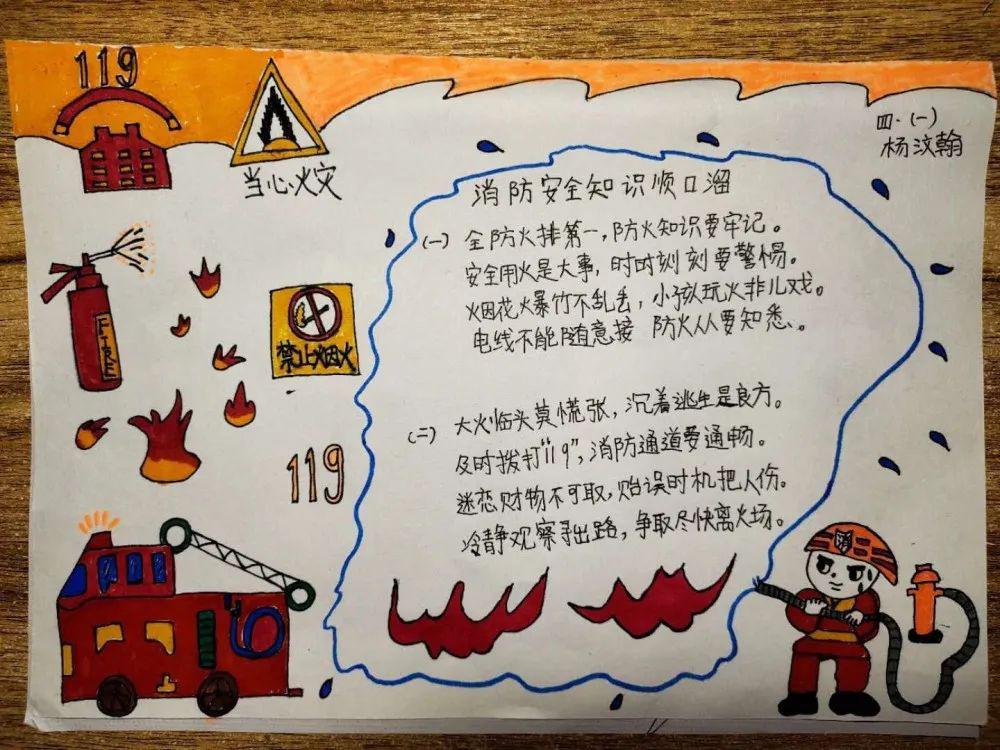 119
当心火灾
四·(一)
杨汶翰
消防安全知识顺口溜
(一) 全防火排第一,防火知识要牢记。
安全用火是大事,时时刻刻要警惕。
烟花火暴竹不乱丢,小孩玩火非儿戏。
电线不能随意接 防火从从要知悉、。
FIRE
禁止烟火
119
(二) 大火临头莫慌张,沉着逃生是良方。
及时拨打“119”,消防通道要通畅。
迷恋财物不可取,贻误时机把人伤。
冷静观察寻出路,争取尽快离火场。
消